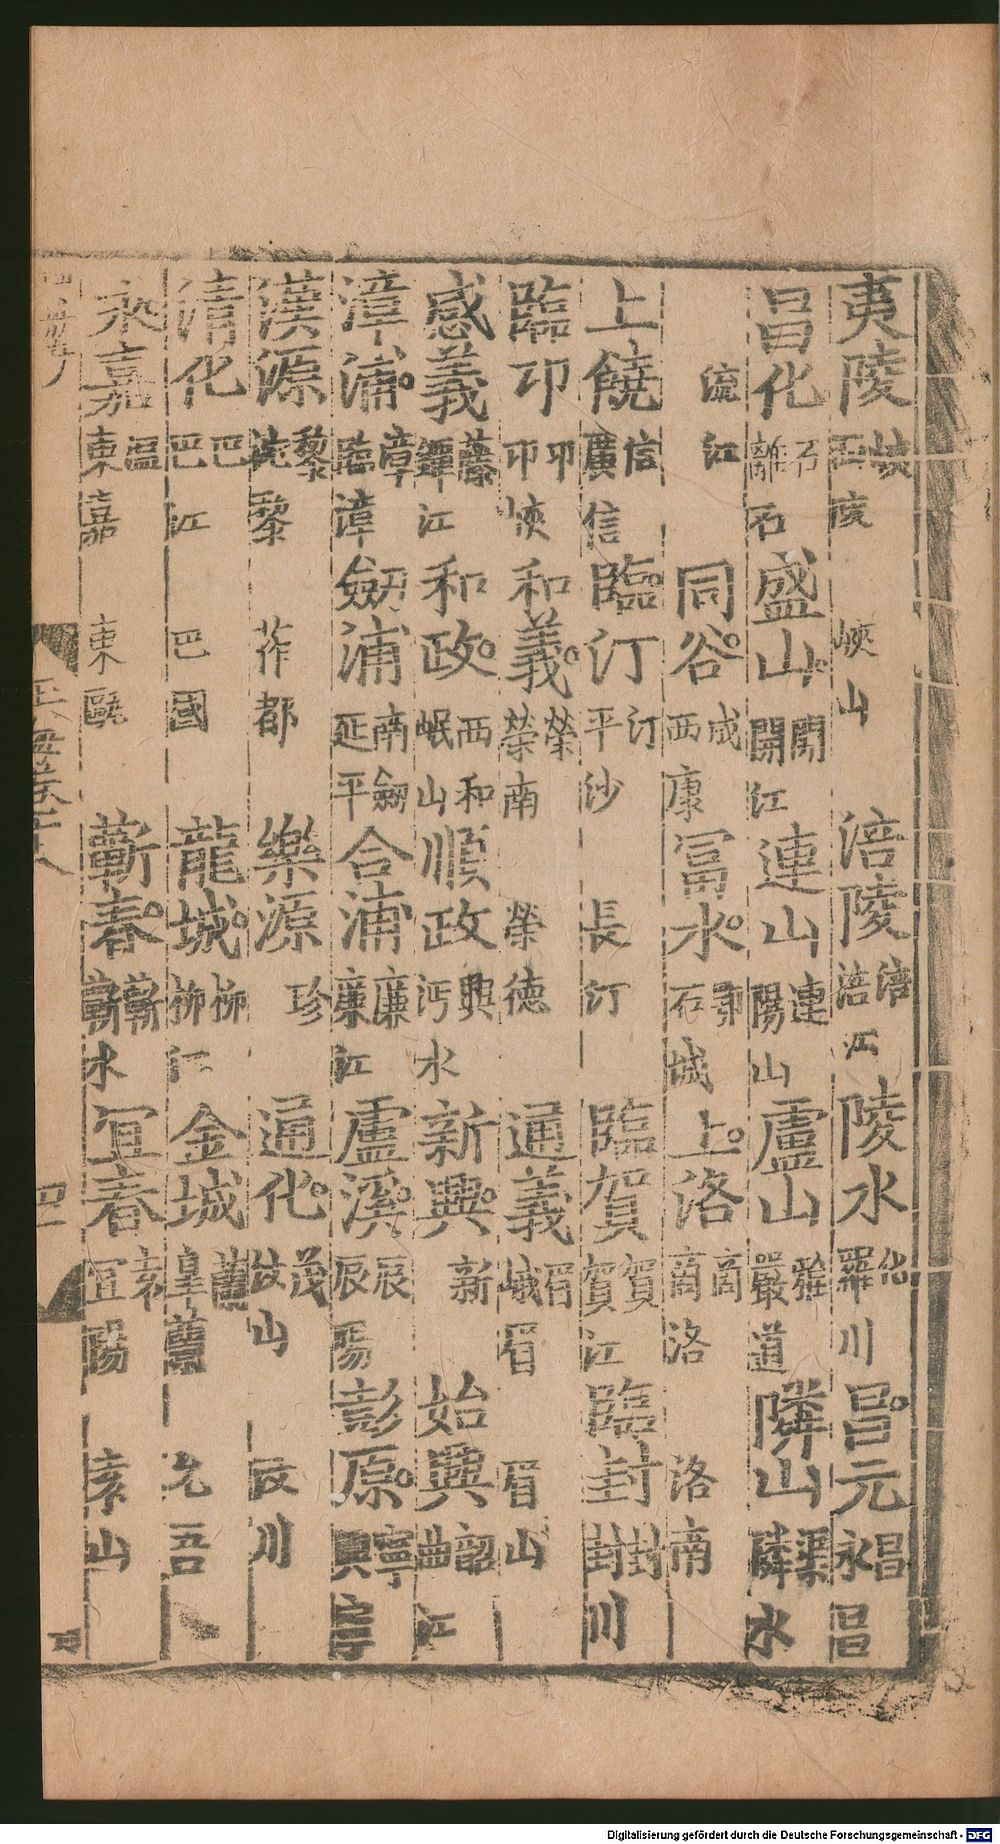 夷陵峽石陵峽山涪陵涪涪江陵水化羅川昌元昌永昌
昌化石離石盛山開開江連山連陽山盧山雅嚴道隣山渠隣水
流江同谷成西康冨水郢石城上洛商商洛洛南
上饒信廣信臨汀汀平沙長汀臨賀賀賀江臨封封封川
臨邛邛邛峽和義榮榮南榮德通義眉峨眉眉山
感義藤鐔江和政西和岷山順政興沔水新興新始興韶曲江
漳浦漳臨漳劒浦南劒延平合浦廉廉江盧溪辰辰陽彭原寧
漢源黎黎莋都樂源珍通化茂汶山汶川
清化巴巴江巴國龍城柳柳江金城蘭皐蘭允吾
永嘉温東嘉東甌蘄春蘄蘄水宜春袁宜陽袁山
四
Digitalisierung gefördert durch die Deutsche Forschungsgemeinschaft - DFG